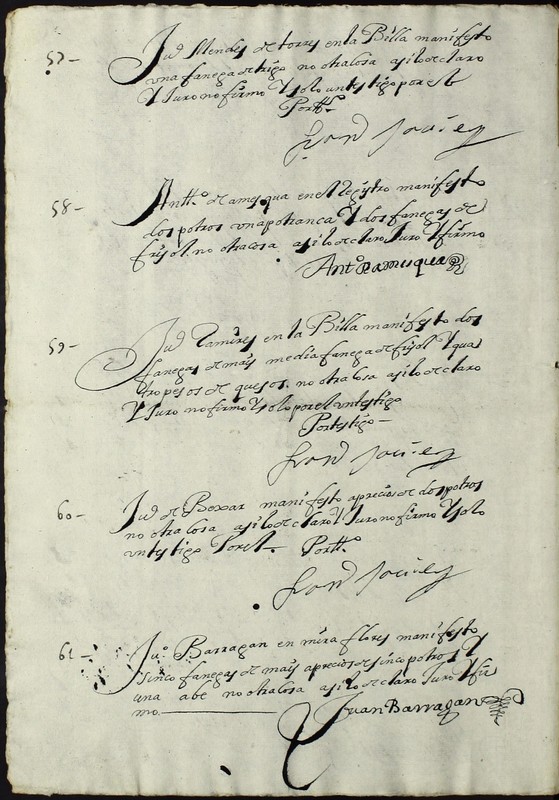 57 — Juº Mendes de torres en la Billa manifesto
una fanega de trigo no otra cosa asi lo declaro
Y Juro no firmo Y solo un testigo por el
Por tº
58 — Anttº de amesqua en el Registro manifesto
dos potros una potranca Y dos fanegas de
frisol. no otra cosa asi lo declaro Juro Y firmo
Antº de amesquea
59 — Juº Ramires en la Billa manifesto dos
fanegas de mais media fanega de frisol Y qua
tro pesos de quesos. no otra cosa asi lo declaro
Y Juro no firmo Y solo por el un testigo
Por testigo —
60 — Juº de Boxar manifesto aprecios de dos potros
no otra cosa asi lo declaro Y Juro no firmo Y solo
un testigo Por el — Por ttº
61 — Juº Barragan en mira flores manifesto
sinco fanegas de mais aprecios de sinco potros Y
una abe no otra cosa asi lo declaro Juro Y fir
mo —
Juan Barragan